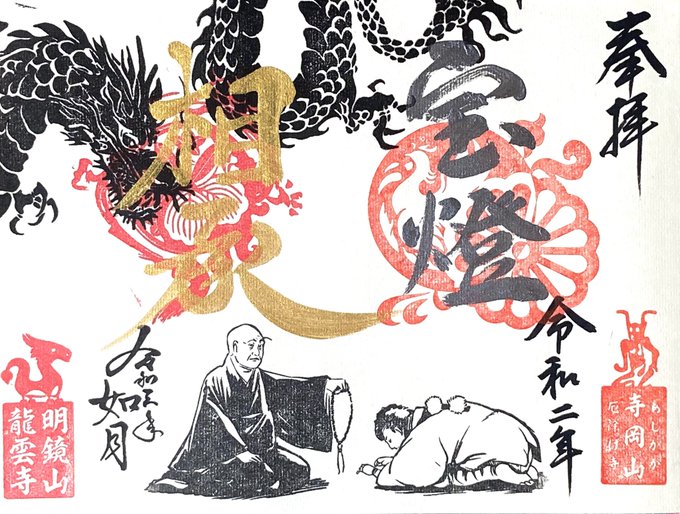 奉拝
宝燈
相承
令和二年
令和三年
如月
あしかが
寺岡山
明鏡山
龍雲寺